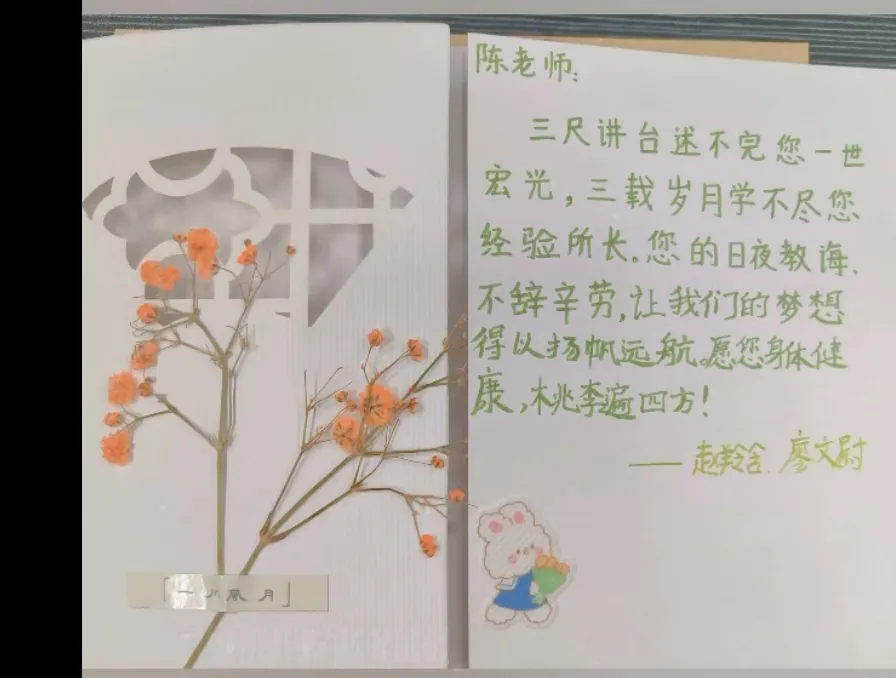 陈老师:
三尺讲台述不完您一世
宏光,三载岁月学不尽您
经验所长。您的日夜教诲、
不辞辛劳,让我们的梦想
得以扬帆远航。愿您身体健
康,桃李遍四方!
——赵羚含、廖文尉
「一川风月」